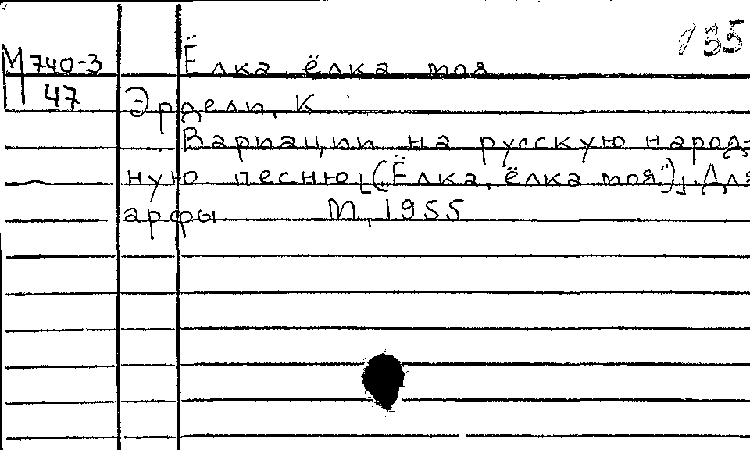 135
М 740-3
Ёлка, ёлка моя
47
Эрдели, К.
Вариации на русскую народ-
ную песню [("Ёлка, ёлка моя")]. Для
арфы М., 1955